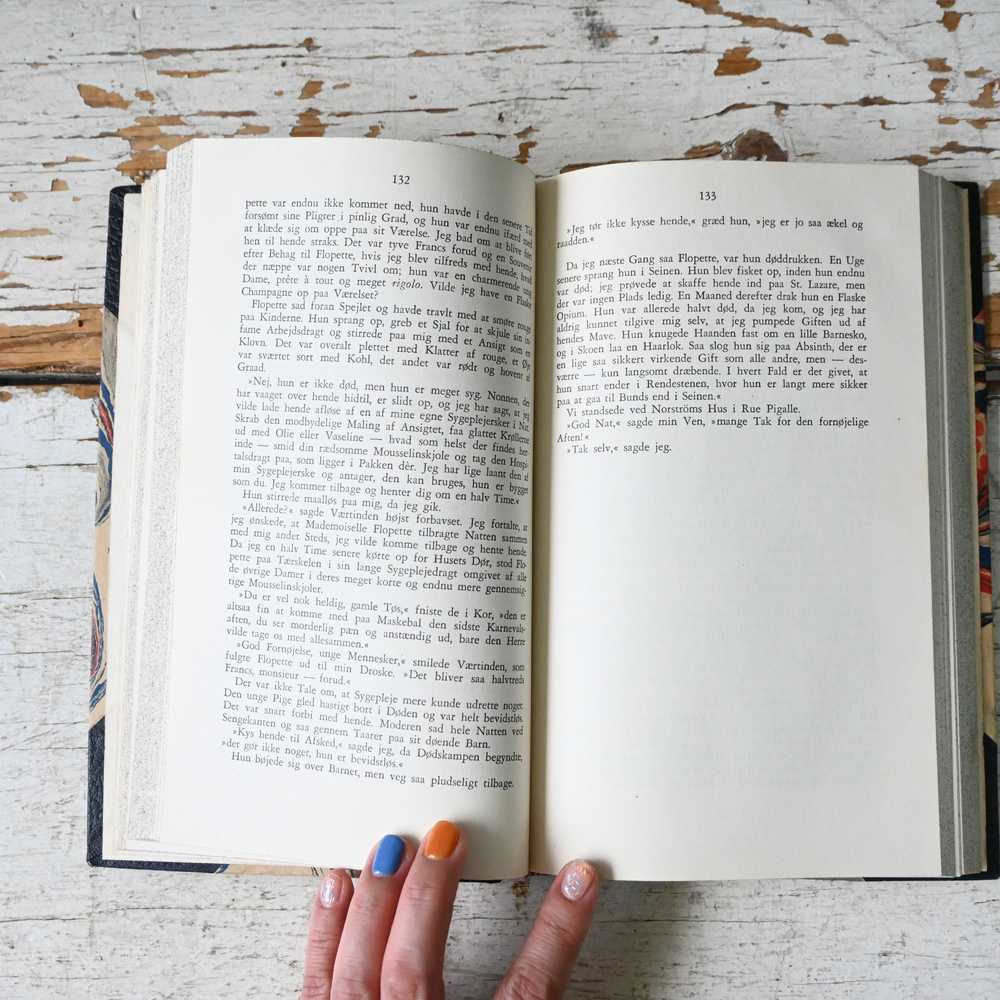 132
pette var endnu ikke kommet ned, hun havde i den senere Tid
forsømt sine Pligter i pinlig Grad, og hun var endnu ifærd med
at klæde sig om oppe paa sit Værelse. Jeg bad om at blive ført
hen til hende straks. Det var tyve Francs forud og en Souvenir
efter Behag til Flopette, hvis jeg blev tilfreds med hende, hvad
der næppe var nogen Tvivl om; hun var en charmerende ung
Dame, prête à tout og meget rigolo. Vilde jeg have en Flaske
Champagne op paa Værelset?
Flopette sad foran Spejlet og havde travlt med at smøre rouge
paa Kinderne. Hun sprang op, greb et Sjal for at skjule sin in-
fame Arbejdsdragt og stirrede paa mig med et Ansigt som en
Klovn. Det var overalt plettet med Klatter af rouge, et Øje
var sværtet sort med Kohl, det andet var rødt og hovent af
Graad.
»Nej, hun er ikke død, men hun er meget syg. Nonnen, der
har vaaget over hende hidtil, er slidt op, og jeg har sagt, at jeg
vilde lade hende afløse af en af mine egne Sygeplejersker i Nat.
Skrab den modbydelige Maling af Ansigtet, faa glattet Krøllerne
ud med Olie eller Vaseline — hvad som helst der findes her-
inde — smid din rædsomme Mousselinskjole og tag den Hospi-
talsdragt paa, som ligger i Pakken dèr. Jeg har lige laant den af
min Sygeplejerske og antager, den kan bruges, hun er bygget
som du. Jeg kommer tilbage og henter dig om en halv Time.«
Hun stirrede maalløs paa mig, da jeg gik.
»Allerede?« sagde Værtinden højst forbavset. Jeg fortalte, at
jeg ønskede, at Mademoiselle Flopette tilbragte Natten sammen
med mig andet Steds, jeg vilde komme tilbage og hente hende.
Da jeg en halv Time senere kørte op for Husets Dør, stod Flo-
pette paa Tærskelen i sin lange Sygeplejedragt omgivet af alle
de øvrige Damer i deres meget korte og endnu mere gennemsig-
tige Mousselinskjoler.
»Du er vel nok heldig, gamle Tøs,« fniste de i Kor, »den er
altsaa fin at komme med paa Maskebal den sidste Karnevals-
aften, du ser morderlig pæn og anstændig ud, bare den Herre
vilde tage os med allesammen.«
»God Fornøjelse, unge Mennesker,« smilede Værtinden, som
fulgte Flopette ud til min Droske. »Det bliver saa halvtreds
Francs, monsieur — forud.«
Der var ikke Tale om, at Sygepleje mere kunde udrette noget.
Den unge Pige gled hastigt bort i Døden og var helt bevidstløs.
Det var snart forbi med hende. Moderen sad hele Natten ved
Sengekanten og saa gennem Taarer paa sit døende Barn.
»Kys hende til Afsked,« sagde jeg, da Dødskampen begyndte,
»det gør ikke noget, hun er bevidstløs.«
Hun bøjede sig over Barnet, men veg saa pludseligt tilbage.
133
»Jeg tør ikke kysse hende,« græd hun, »jeg er jo saa ækel og
raadden.«
Da jeg næste Gang saa Flopette, var hun døddrukken. En Uge
senere sprang hun i Seinen. Hun blev fisket op, inden hun endnu
var død; jeg prøvede at skaffe hende ind paa St. Lazare, men
der var ingen Plads ledig. En Maaned derefter drak hun en Flaske
Opium. Hun var allerede halvt død, da jeg kom, og jeg har
aldrig kunnet tilgive mig selv, at jeg pumpede Giften ud af
hendes Mave. Hun knugede Haanden fast om en lille Barnesko,
og i Skoen laa en Haarlok. Saa slog hun sig paa Absinth, der er
en lige saa sikkert virkende Gift som alle andre, men — des-
værre — kun langsomt dræbende. I hvert Fald er det givet, at
hun snart ender i Rendestenen, hvor hun er langt mere sikker
paa at gaa til Bunds end i Seinen.«
Vi standsede ved Norströms Hus i Rue Pigalle.
»God Nat,« sagde min Ven, »mange Tak for den fornøjelige
Aften!«
»Tak selv,« sagde jeg.